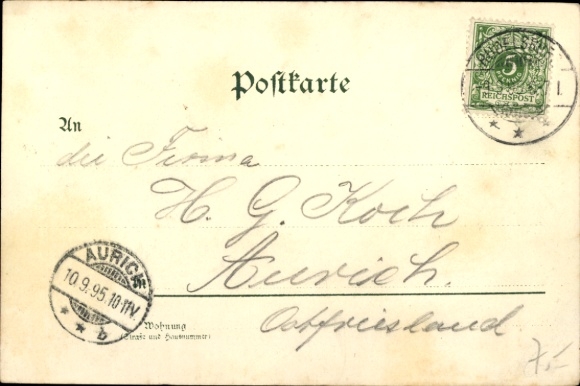 Postkarte
5
REICHSPOST
An
die Firma
H. G. Koch
Aurich.
AURICH
10.9.95.10-11V.
* * b
Wohnung
(Straße und Hausnummer)
Ostfriesland
7.-